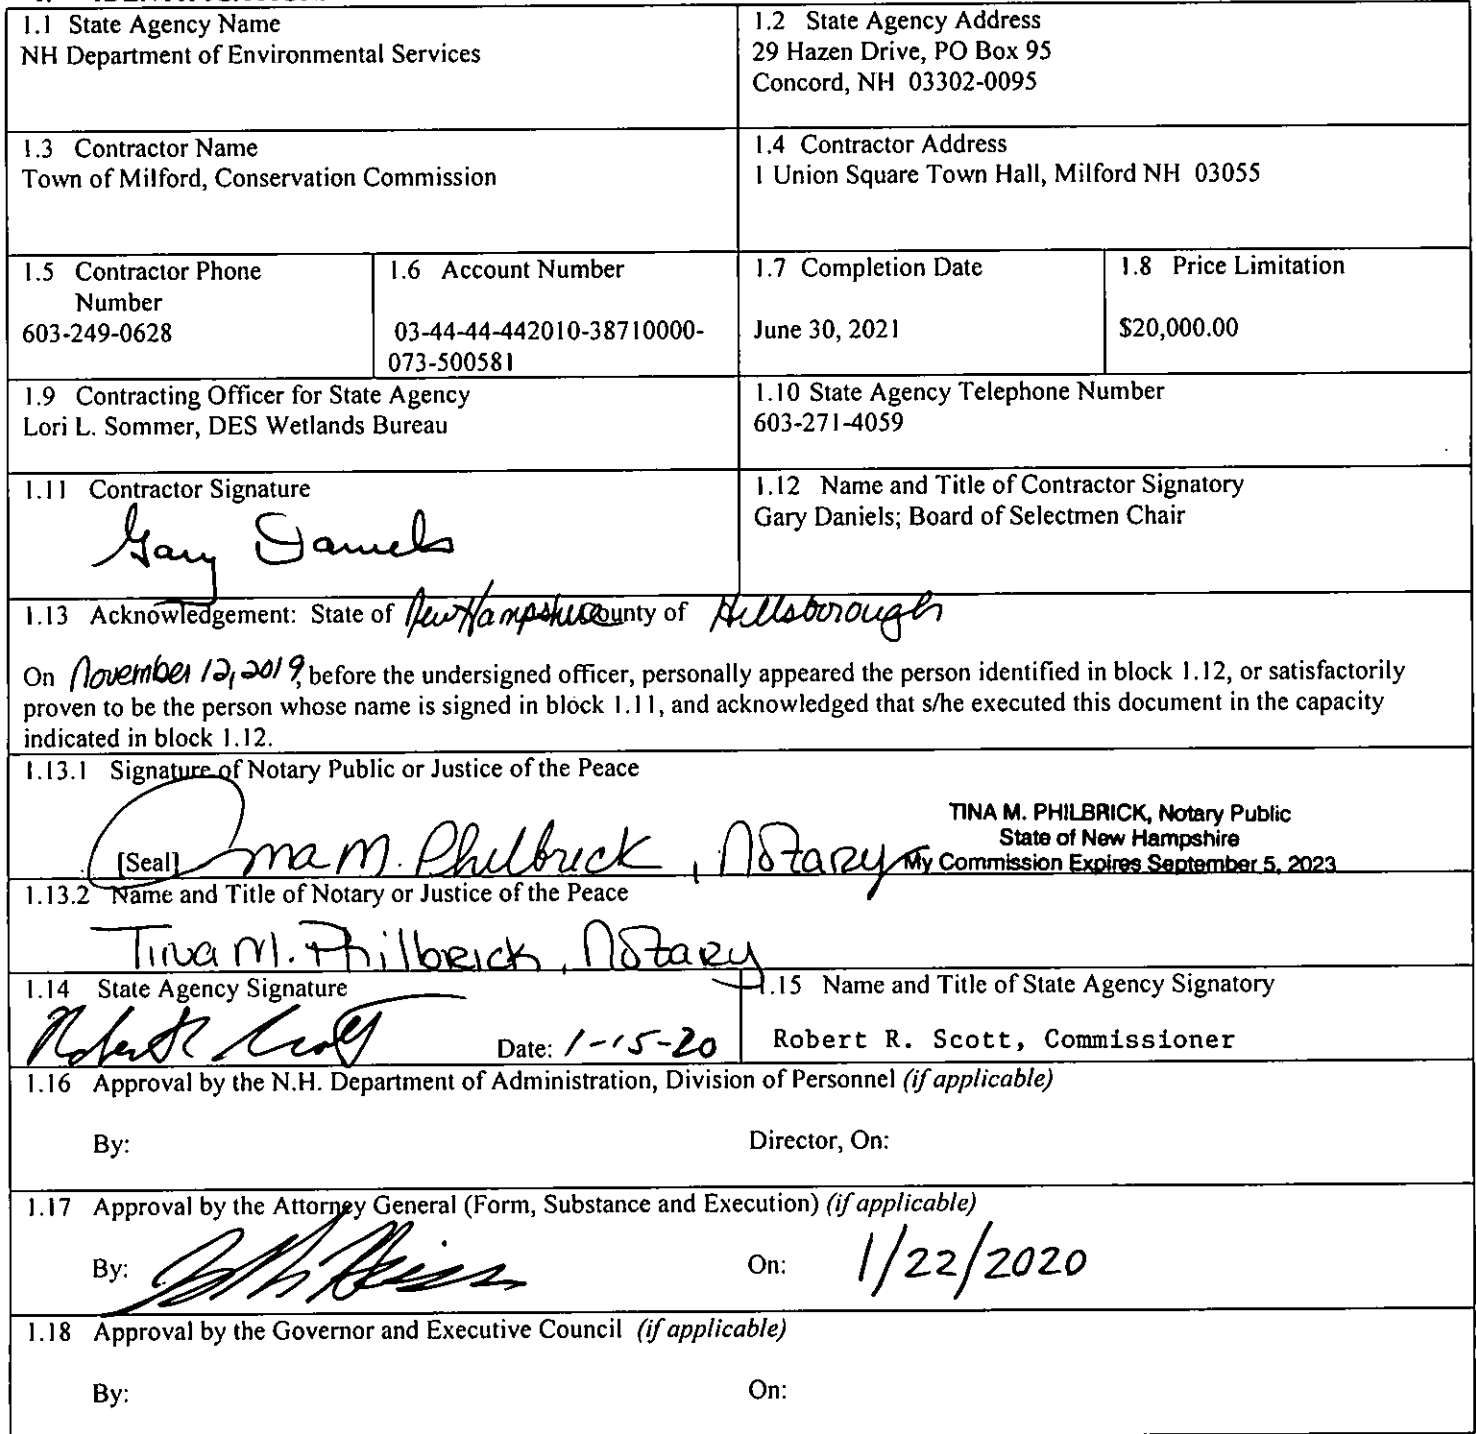 1.1 State Agency Name
NH Department of Environmental Services
1.2 State Agency Address
29 Hazen Drive, PO Box 95
Concord, NH 03302-0095
1.3 Contractor Name
Town of Milford, Conservation Commission
1.4 Contractor Address
1 Union Square Town Hall, Milford NH 03055
1.5 Contractor Phone
Number
603-249-0628
1.6 Account Number
03-44-44-442010-38710000-
073-500581
1.7 Completion Date
June 30, 2021
1.8 Price Limitation
$20,000.00
1.9 Contracting Officer for State Agency
Lori L. Sommer, DES Wetlands Bureau
1.10 State Agency Telephone Number
603-271-4059
1.11 Contractor Signature
Gary Daniels
1.12 Name and Title of Contractor Signatory
Gary Daniels; Board of Selectmen Chair
1.13 Acknowledgement: State of New Hampshire County of Hillsborough
On November 12, 2019, before the undersigned officer, personally appeared the person identified in block 1.12, or satisfactorily
proven to be the person whose name is signed in block 1.11, and acknowledged that s/he executed this document in the capacity
indicated in block 1.12.
1.13.1 Signature of Notary Public or Justice of the Peace
[Seal] Tina M. Philbrick, Notary
TINA M. PHILBRICK, Notary Public
State of New Hampshire
My Commission Expires September 5, 2023
1.13.2 Name and Title of Notary or Justice of the Peace
Tina M. Philbrick, Notary
1.14 State Agency Signature
Robert R Scott Date: 1-15-20
1.15 Name and Title of State Agency Signatory
Robert R. Scott, Commissioner
1.16 Approval by the N.H. Department of Administration, Division of Personnel (if applicable)
By: Director, On:
1.17 Approval by the Attorney General (Form, Substance and Execution) (if applicable)
By: On: 1/22/2020
1.18 Approval by the Governor and Executive Council (if applicable)
By: On: